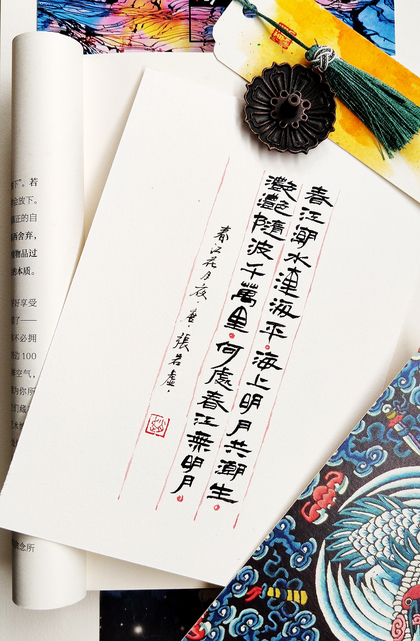 春江潮水連海平。海上明月共潮生。
灩灩隨波千萬里。何處春江無明月。
春江花月夜.唐.張若虛.
下”。若
放下。
正的自
舍弃，
物品过
的本质。
好享受
了——
不必拥
100
空气，
为你所
念所